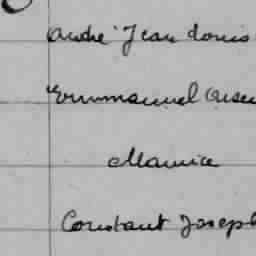 André Jean Louis
Emmanuel
Maurice
Constant Joseph